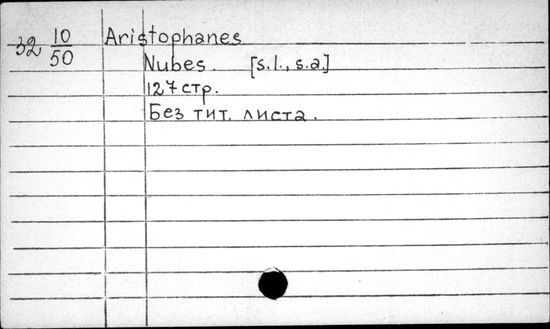 32 10/50 Aristophanes
Nubes. [s.l., s.a.]
127 стр.
Без тит. листа.